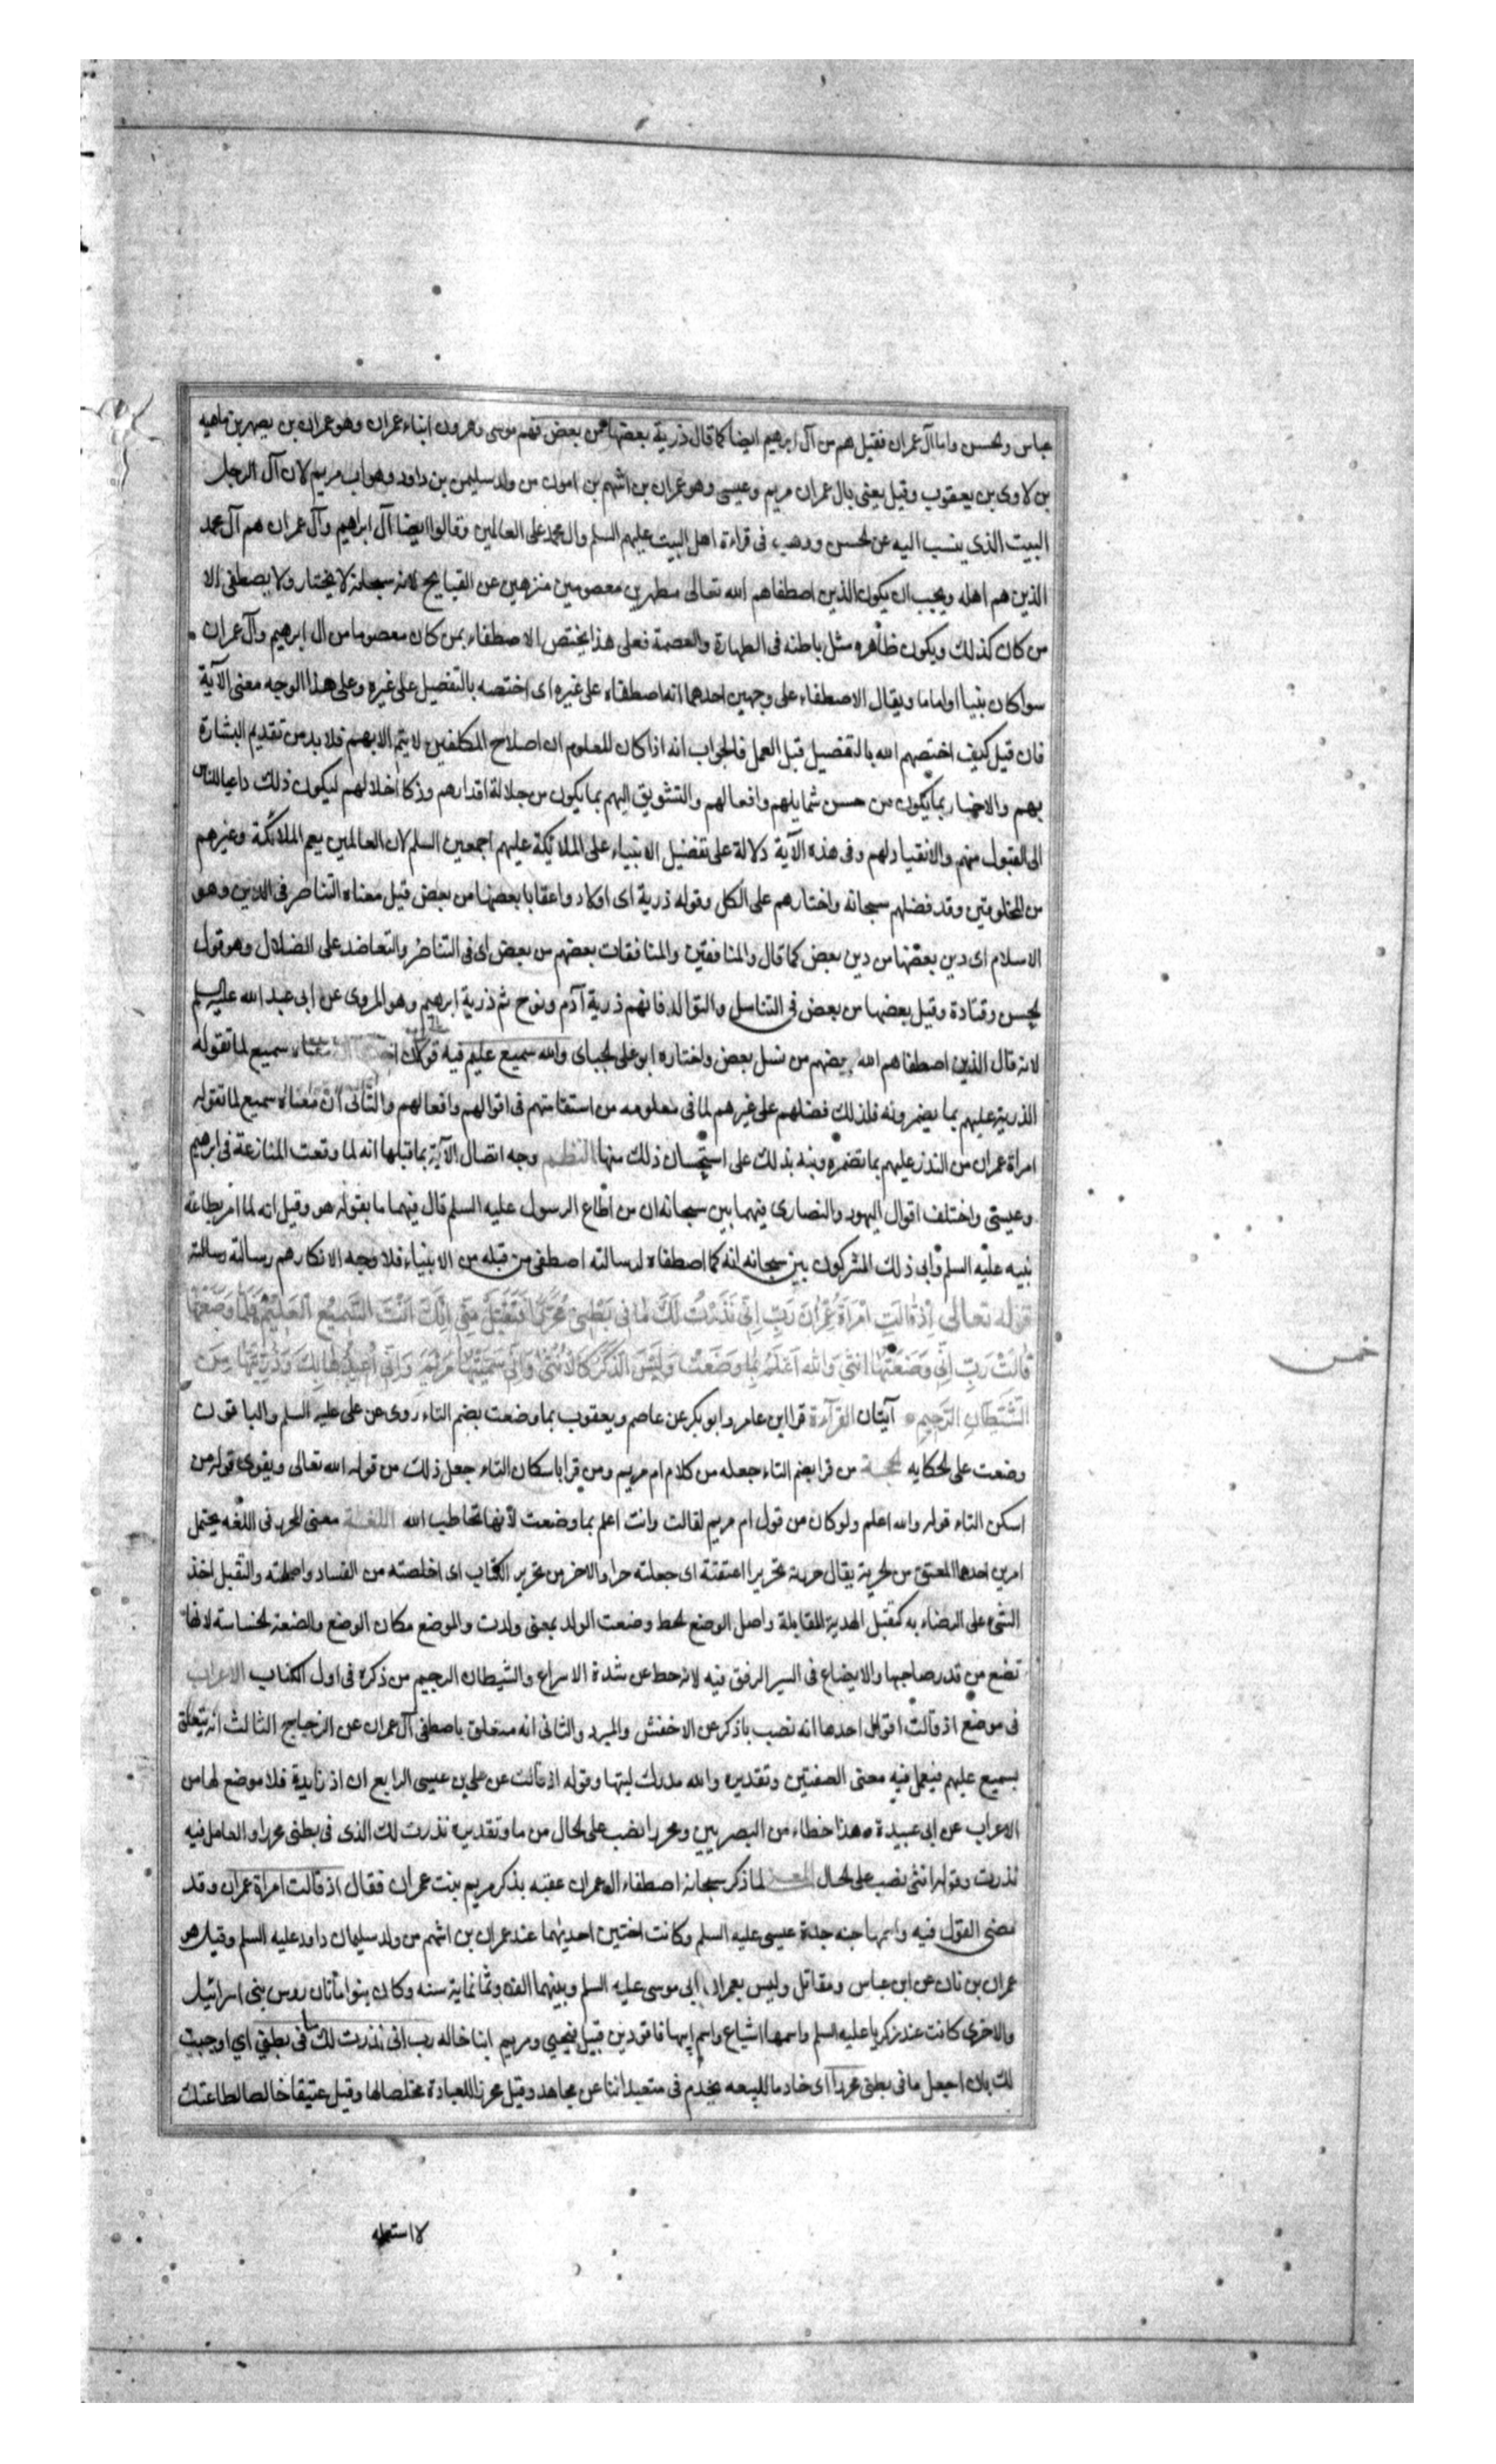 عباس والحسن واما آل عمران فقيل هم من آل ابرهيم ايضا كما قال ذرية بعضها من بعض فهم موسى وهرون ابناء عمران وهو عمران بن يصهر بن فاهيه
بن لاوى بن يعقوب وقيل يعنى بال عمران مريم وعيسى وهو عمران بن اشهم بن امون من ولد سليمن بن داود وهو اب مريم لان آل الرجل
البيت الذى ينسب اليه عن الحسن ووهب فى قراءة اهل البيت عليهم السلم وال محمد على العالمين وقالوا ايضا آل ابراهيم وآل عمران هم آل محمد
الذين هم اهله ويجب ان يكون الذين اصطفاهم الله تعالى مطهرين معصومين منزهين عن القبايح لانه سبحانه لا يختار ولا يصطفى الا
من كان كذلك ويكون ظاهره مثل باطنه فى الطهارة والعصمة فعلى هذا يختص الاصطفاء بمن كان معصوما من ال ابرهيم وآل عمران
سوا كان نبيا او اماما ويقال الاصطفاء على وجهين احدهما انه اصطفاه على غيره اى اختصه بالتفضيل على غيره وعلى هذا الوجه معنى الآية
فان قيل كيف اختصهم الله بالتفضيل قبل العمل فالجواب انه اذا كان المعلوم ان اصلاح المكلفين لا يتم الا بهم فلا بد من تقديم البشارة
بهم والاخبار بما يكون من حسن شمايلهم وافعالهم والتشويق اليهم بما يكون من جلالة اقدارهم وذكا اخلالهم ليكون ذلك داعيا للناس
الى القبول منهم والانقياد لهم وفى هذه الآية دلالة على تفضيل الانبياء على الملائكة عليهم اجمعين السلم لان العالمين يعم الملائكة وغيرهم
من المخلوقين وقد فضلهم سبحانه واختارهم على الكل وقوله ذرية اى اولاد واعقابا بعضها من بعض قيل معناه التناصر فى الدين وهو
الاسلام اى دين بعضها من دين بعض كما قال والمنافقين والمنافقات بعضهم من بعض اى فى التناصر والتعاضد على الضلال وهو قول
الحسن وقتادة وقيل بعضها من بعض فى التناسل والتوالد فانهم ذرية آدم ونوح ثم ذرية ابرهيم وهو المروى عن ابى عبد الله عليه السلم
لانه قال الذين اصطفاهم الله بعضهم من نسل بعض واختاره ابو على الجباى والله سميع عليم فيه قولان معناه سميع لما تقوله
الذرية عليهم بما يضمرونه فلذلك فضلهم على غيرهم لما فى معلومه من استقامتهم فى اقوالهم وافعالهم والثانى ان معناه سميع لما تقوله
امراة عمران من النذر عليهم بما تضمره ونبه بذلك على استحسان ذلك منها النظم وجه اتصال الآية بما قبلها انه لما وقعت المنازعة فى ابرهيم
وعيسى واختلف اقوال اليهود والنصارى فيهما بين سبحانه ان من اطاع الرسول عليه السلم قال فيهما ما يقوله هو وقيل انه لما امر بطاعة
نبيه عليه السلم وابى ذلك المشركون بين سبحانه انه كما اصطفاه لرسالته اصطفى من قبله من الانبياء فلا وجه لانكارهم رسالته
قوله تعالى اِذْ قَالَتِ امْرَاَةُ عِمْرانَ رَبِّ اِنِّى نَذَرْتُ لَكَ مَا فِى بَطْنِى مُحَرَّرًا فَتَقَبَّلْ مِنِّى اِنَّكَ اَنْتَ السَّمِيعُ الْعَلِيمُ فَلَمَّا وَضَعَتْهَا
قَالَتْ رَبِّ اِنِّى وَضَعْتُهَا اُنْثَى وَاللهُ اَعْلَمُ بِمَا وَضَعَتْ وَلَيْسَ الذَّكَرُ كَالْاُنْثَى وَاِنِّى سَمَّيْتُهَا مَرْيَمَ وَاِنِّى اُعِيذُهَا بِكَ وَذُرِّيَّتَهَا مِنَ
الشَّيْطَانِ الرَّجِيمِ آيتان القراءة قرا ابن عامر وابو بكر عن عاصم ويعقوب بما وضعت بضم التاء روى عن على عليه السلم والباقون
وضعت على الحكايه الحجة من قرا بضم التاء جعله من كلام ام مريم ومن قرا باسكان التاء جعل ذلك من قول الله تعالى ويقوى قول من
اسكن التاء قوله والله اعلم ولو كان من قول ام مريم لقالت وانت اعلم بما وضعت لانها تخاطب الله اللغة معنى المحرر فى اللغه يحتمل
امرين احدهما المعتق من الحرية يقال حررته تحريرا اعتقته اى جعلته حرا والاخر من تحرير الكتاب اى اخلصته من الفساد واصلحته والتقبل اخذ
الشىء على الرضاء به كتقبل الهدية للمقابلة واصل الوضع الحط وضعت الولد بمعنى ولدت والموضع مكان الوضع والضعة الخساسة لانها
تضع من قدر صاحبها والايضاع فى السير الرفق فيه لانه حط عن شدة الاسراع والشيطان الرجيم من ذكره فى اول الكتاب الاعراب
فى موضع اذ قالت اقوال احدها انه نصب باذكر عن الاخفش والمبرد والثانى انه متعلق باصطفى آل عمران عن الزجاج الثالث انه يتعلق
بسميع عليهم فيعمل فيه معنى الصفتين وتقديره والله مدرك لنيتها وقوله اذ قالت عن على بن عيسى الرابع ان اذ زايدة فلا موضع لها من
الاعراب عن ابى عبيدة وهذا خطاء من البصريين ومحررا نصب على الحال من ما وتقديره نذرت لك الذى فى بطنى محررا والعامل فيه
نذرت وقوله انثى نصب على الحال المعنى لما ذكر سبحانه اصطفاء ال عمران عقبه بذكر مريم بنت عمران فقال اذ قالت امراة عمران وقد
مضى القول فيه واسمها حنه جدة عيسى عليه السلم وكانت اختين احديهما عند عمران بن اشهم من ولد سليمان داود عليه السلم وقيل هو
عمران بن ثان عن ابن عباس ومقاتل وليس بعمران ابى موسى عليه السلم وبينهما الف وثمانماية سنه وكان بنوا ماثان روس بنى اسرائيل
والاخرى كانت عند زكريا عليه السلم واسمها اشياع واسم ابيها فاقود بن قبيل فيحيى ومريم ابنا خاله رب انى نذرت لك ما فى بطنى اى اوجبت
لك بان اجعل ما فى بطنى محررا اى خادما للبيعه يخدم فى متعبداتنا عن مجاهد وقيل محررا للعبادة مخلصا لها وقيل عتيقا خالصا لطاعتك
خمس
لا استعمله